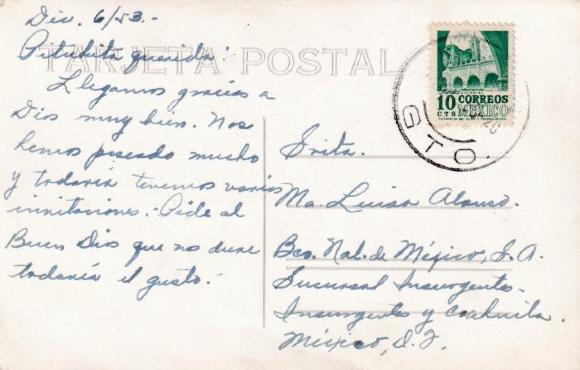 Dic. 6/53.-
TARJETA POSTAL
Pitukita querida:
Llegamos gracias a
Dios muy bien. Nos
hemos paseado mucho
y todavía tenemos varias
invitaciones.- Pide al
Buen Dios que nos dure
todavía el gusto.-
10 CORREOS
CTS MEXICO
GTO.
Srita.
Ma. Luisa Alonso.
Bco. Nal. de México, S.A.
Sucursal Insurgentes-
Insurgentes y Coahuila.
México, D.F.